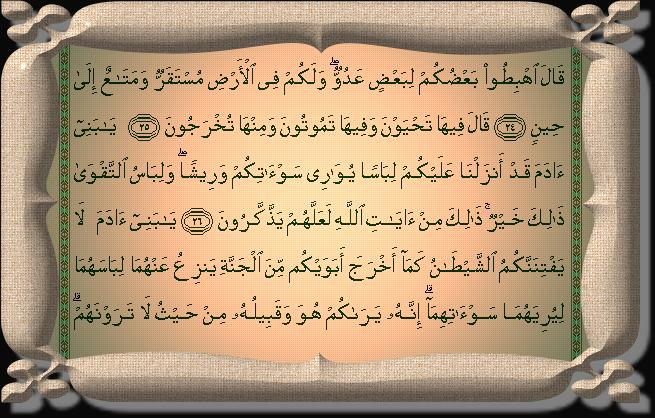 قَالَ ٱهْبِطُوا۟ بَعْضُكُمْ لِبَعْضٍ عَدُوٌّۖ وَلَكُمْ فِى ٱلْأَرْضِ مُسْتَقَرٌّ وَمَتَـٰعٌ إِلَىٰ
حِينٍ ٢٤ قَالَ فِيهَا تَحْيَوْنَ وَفِيهَا تَمُوتُونَ وَمِنْهَا تُخْرَجُونَ ٢٥ يَـٰبَنِىٓ
ءَادَمَ قَدْ أَنزَلْنَا عَلَيْكُمْ لِبَاسًا يُوَٰرِى سَوْءَٰتِكُمْ وَرِيشًاۖ وَلِبَاسُ ٱلتَّقْوَىٰ
ذَٰلِكَ خَيْرٌۚ ذَٰلِكَ مِنْ ءَايَـٰتِ ٱللَّهِ لَعَلَّهُمْ يَذَّكَّرُونَ ٢٦ يَـٰبَنِىٓ ءَادَمَ لَا
يَفْتِنَنَّكُمُ ٱلشَّيْطَـٰنُ كَمَآ أَخْرَجَ أَبَوَيْكُم مِّنَ ٱلْجَنَّةِ يَنزِعُ عَنْهُمَا لِبَاسَهُمَا
لِيُرِيَهُمَا سَوْءَٰتِهِمَآۗ إِنَّهُۥ يَرَىٰكُمْ هُوَ وَقَبِيلُهُۥ مِنْ حَيْثُ لَا تَرَوْنَهُمْۗ